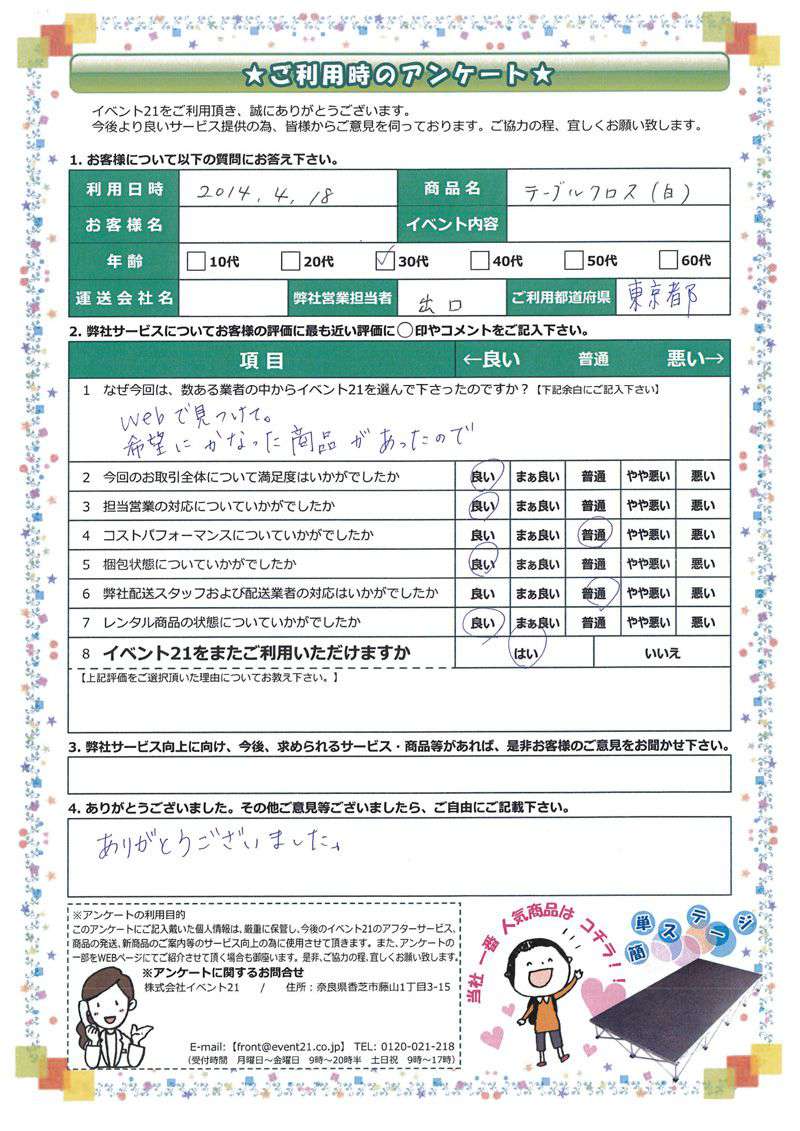 ★ご利用時のアンケート★
イベント21をご利用頂き、誠にありがとうございます。
今後より良いサービス提供の為、皆様からご意見を伺っております。ご協力の程、宜しくお願い致します。
1. お客様について以下の質問にお答え下さい。
利用日時 2014. 4. 18 商品名 テーブルクロス(白)
お客様名 イベント内容
年齢 10代 20代 30代 40代 50代 60代
運送会社名 弊社営業担当者 出口 ご利用都道府県 東京都
2. 弊社サービスについてお客様の評価に最も近い評価に○印やコメントをご記入下さい。
項目 ←良い 普通 悪い→
1 なぜ今回は、数ある業者の中からイベント21を選んで下さったのですか？【下記余白にご記入下さい】
webで見つけて。
希望にかなった商品があったので
2 今回のお取引全体について満足度はいかがでしたか 良い まぁ良い 普通 やや悪い 悪い
3 担当営業の対応についていかがでしたか 良い まぁ良い 普通 やや悪い 悪い
4 コストパフォーマンスについていかがでしたか 良い まぁ良い 普通 やや悪い 悪い
5 梱包状態についていかがでしたか 良い まぁ良い 普通 やや悪い 悪い
6 弊社配送スタッフおよび配送業者の対応はいかがでしたか 良い まぁ良い 普通 やや悪い 悪い
7 レンタル商品の状態についていかがでしたか 良い まぁ良い 普通 やや悪い 悪い
8 イベント21をまたご利用いただけますか はい いいえ
【上記評価をご選択頂いた理由についてお教え下さい。】
3. 弊社サービス向上に向け、今後、求められるサービス・商品等があれば、是非お客様のご意見をお聞かせ下さい。
4. ありがとうございました。その他ご意見等ございましたら、ご自由にご記載下さい。
ありがとうございました。
※アンケートの利用目的
このアンケートにご記入戴いた個人情報は、厳重に保管し、今後のイベント21のアフターサービス、
商品の発送、新商品のご案内等のサービス向上の為に使用させて頂きます。また、アンケートの
一部をWEBページにてご紹介させて頂く場合も御座います。是非、ご協力の程、宜しくお願い致します。
※アンケートに関するお問合せ
株式会社イベント21 / 住所：奈良県香芝市藤山1丁目3-15
E-mail:【front@event21.co.jp】 TEL: 0120-021-218
(受付時間 月曜日～金曜日 9時～20時半 土日祝 9時～17時)
当社一番人気商品はコチラ！！
簡単ステージ